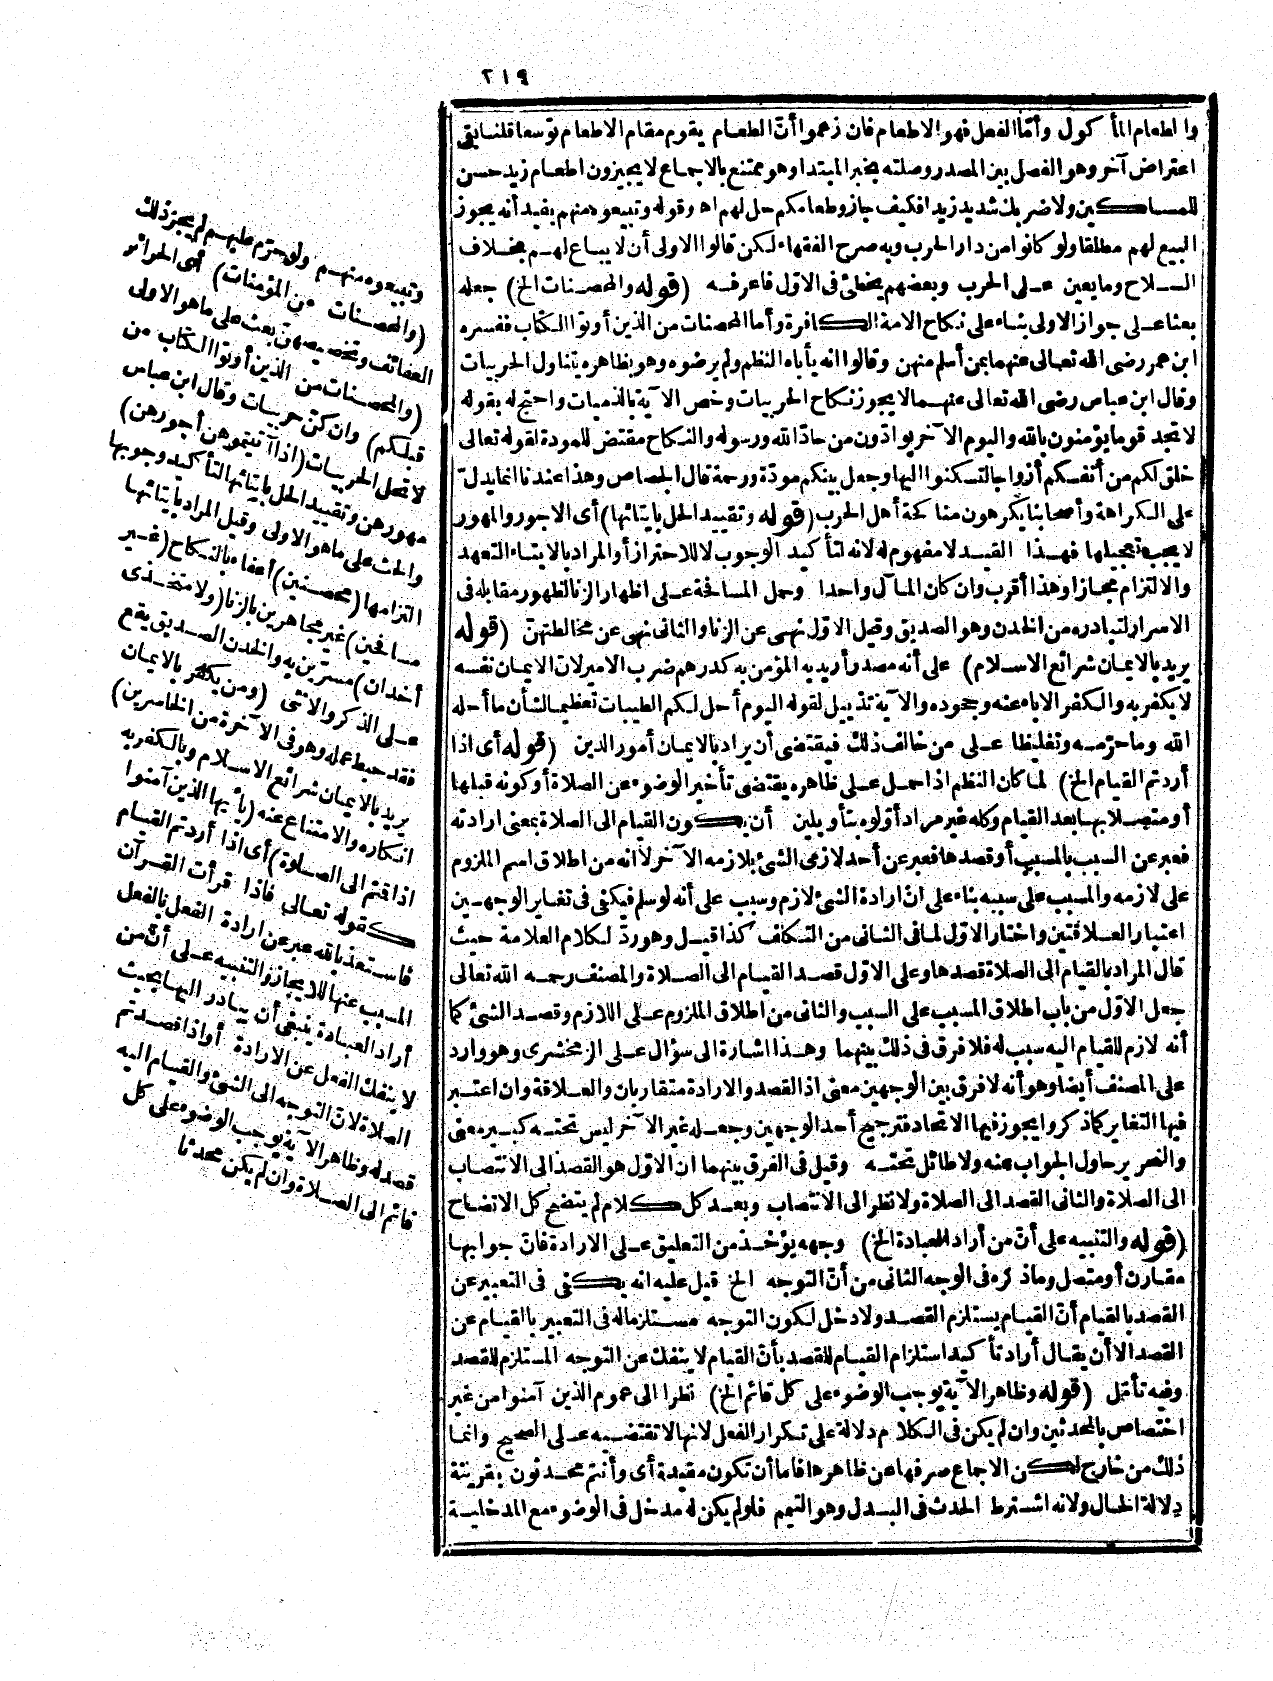 ٢١٩
والطعام المأكول وأما الفعل فهو الاطعام فان زعموا أنّ الطعام يقوم مقام الاطعام توسعا قلنا بقى
اعتراض آخر وهو الفصل بين المصدر وصلته بخبر المبتدا وهو ممتنع بالاجماع لا يجيزون اطعام زيد حسن
للمساكين ولا ضربك شديد زيدا فكيف جاز وطعامكم حل لهم اه وقوله وتبيعوه منهم يفيد أنه يجوز
البيع لهم مطلقا ولو كانوا من دار الحرب وبه صرح الفقهاء لكن قالوا الاولى أن لا يباع لهم بخلاف
السلاح وما يعين على الحرب وبعضهم يخطئ فى الاوّل فاعرفه (قوله والمحصنات الخ) جعله
بعثا على جواز الاولى بناء على نكاح الامة الكافرة وأما المحصنات من الذين أوتوا الكتاب ففسره
ابن عمر رضى الله تعالى عنهما بمن أسلم منهن وقالوا انه يأباه النظم ولم يرضوه وهو بظاهره يتناول الحربيات
وقال ابن عباس رضى الله تعالى عنهما لا يجوز نكاح الحربيات وخص الآية بالذميات واحتج له بقوله
لا تجد قوما يؤمنون بالله واليوم الآخر يوادّون من حادّ الله ورسوله والنكاح مقتض للمودة لقوله تعالى
خلق لكم من أنفسكم أزواجا لتسكنوا اليها وجعل بينكم مودّة ورحمة قال الجصاص وهذا عندنا انما يدل
على الكراهة وأصحابنا يكرهون مناكحة أهل الحرب (قوله وتقييد الحل بايتائها) أى الاجور والمهور
لا يجب تعجيلها فهذا القيد لا مفهوم له لانه لتأكيد الوجوب لا للاحتراز أو المراد بالايتاء التعهد
والالتزام مجازا وهذا أقرب وان كان المآل واحدا وحمل المسافحة على اظهار الزنا لظهور مقابله فى
الاسرار لتبادره من الخدن وهو الصديق وقيل الاوّل نهى عن الزنا والثانى نهى عن مخالطتهنّ (قوله
يريد بالايمان شرائع الاسلام) على أنه مصدر أريد به المؤمن به كدرهم ضرب الامير لانّ الايمان نفسه
لا يكفر به والكفر الاباء عنه وجحوده والآية تذييل لقوله اليوم أحل لكم الطيبات تعظيما لشأن ما أحله
الله وما حرّمه وتغليظا على من خالف ذلك فيقتضى أن يراد بالايمان أمور الدين (قوله أى اذا
أردتم القيام الخ) لما كان النظم اذا حمل على ظاهره يقتضى تأخير الوضوء عن الصلاة أو كونه قبلها
أو متصلا بها بعد القيام وكله غير مراد أوّلوه بتأويلين أن يكون القيام الى الصلاة بمعنى ارادته
فعبر عن السبب بالمسبب أو قصدها فعبر عن أحد لازمى الشئ بلازمه الآخر لا انه من اطلاق اسم الملزوم
على لازمه والمسبب على سببه بناء على انّ ارادة الشئ لازم وسبب على أنه لو سلم فيكفى فى تغاير الوجهين
اعتبار العلاقتين واختار الاوّل لما فى الثانى من التكلف كذا قيل وهو ردّ لكلام العلامة حيث
قال المراد بالقيام الى الصلاة قصدها وعلى الاوّل قصد القيام الى الصلاة والمصنف رحمه الله تعالى
جعل الاوّل من باب اطلاق المسبب على السبب والثانى من اطلاق الملزوم على اللازم وقصد الشئ كما
أنه لازم للقيام اليه سبب له فلا فرق فى ذلك بينهما وهذا اشارة الى سؤال على الزمخشرى وهو وارد
على المصنف أيضا وهو أنه لا فرق بين الوجهين معنى اذ القصد والارادة متقاربان والعلاقة وان اعتبر
فيها التغاير كما ذكروا يجوز فيها الاتحاد فترجيح أحد الوجهين وجعله غير الآخر ليس تحته كبير معنى
والنحرير حاول الجواب عنه ولا طائل تحته وقيل فى الفرق بينهما ان الاوّل هو القصد الى الانتصاب
الى الصلاة والثانى القصد الى الصلاة ولا نظر الى الانتصاب وبعد كل كلام لم يتضح كل الاتضاح
(قوله والتنبيه على أنّ من أراد العبادة الخ) وجهه يؤخذ من التعليق على الارادة فانّ جوابها
مقارن أو متصل وما ذكره فى الوجه الثانى من أنّ التوجه الخ قيل عليه انه يكفى فى التعبير عن
القصد بالقيام أنّ القيام يستلزم القصد ولا دخل لكون التوجه مستلزما له فى التعبير بالقيام عن
القصد الا أن يقال أراد تأكيد استلزام القيام للقصد بأنّ القيام لا ينفك عن التوجه المستلزم للقصد
وفيه تأمّل (قوله وظاهر الآية يوجب الوضوء على كل قائم الخ) نظرا الى عموم الذين آمنوا من غير
اختصاص بالمحدثين وان لم يكن فى الكلام دلالة على تكرار الفعل لانها لا تقتضيه على الصحيح وانما
ذلك من خارج لكن الاجماع صرفها عن ظاهرها فاما أن تكون مقيدة أى وأنتم محدثون بقرينة
دلالة الحال ولانه اشترط الحدث فى البدل وهو التيمم فلو لم يكن له مدخل فى الوضوء مع المدخلية
وتبيعوه منهم ولو حرّم عليهم لم يجز ذلك
(والمحصنات من المؤمنات) أى الحرائر
العفائف وتخصيصهنّ بعث على ما هو الاولى
(والمحصنات من الذين أوتوا الكتاب من
قبلكم) وان كنّ حربيات وقال ابن عباس
لا تحل الحربيات (اذا آتيتموهن أجورهن)
مهورهن وتقييد الحل بايتائها لتأكيد وجوبها
والحث على ما هو الاولى وقيل المراد بايتائها
التزامها (محصنين) أعفاء بالنكاح (غير
مسافحين) غير مجاهرين بالزنا (ولا متخذى
أخدان) مسرّين به والخدن الصديق يقع
على الذكر والانثى (ومن يكفر بالايمان
فقد حبط عمله وهو فى الآخرة من الخاسرين)
يريد بالايمان شرائع الاسلام وبالكفر به
انكاره والامتناع عنه (يا أيها الذين آمنوا
اذا قمتم الى الصلوة) أى اذا أردتم القيام
كقوله تعالى فاذا قرأت القرآن
فاستعذ بالله عبر عن ارادة الفعل بالفعل
المسبب عنها للايجاز والتنبيه على أنّ من
أراد العبادة ينبغى أن يبادر اليها بحيث
لا ينفك الفعل عن الارادة أو اذا قصدتم
الصلاة لانّ التوجه الى الشئ والقيام اليه
قصد له وظاهر الآية يوجب الوضوء على كل
قائم الى الصلاة وان لم يكن محدثا